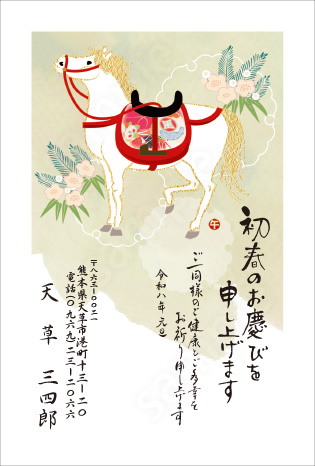 初春のお慶びを
申し上げます
ご一同様のご健康とご多幸を
お祈り申し上げます
令和八年 元旦
午
〒八六三ー〇〇二一
熊本県天草市港町十三ー二〇
電話(〇九六九)二三ー二〇六六
天草 三四郎